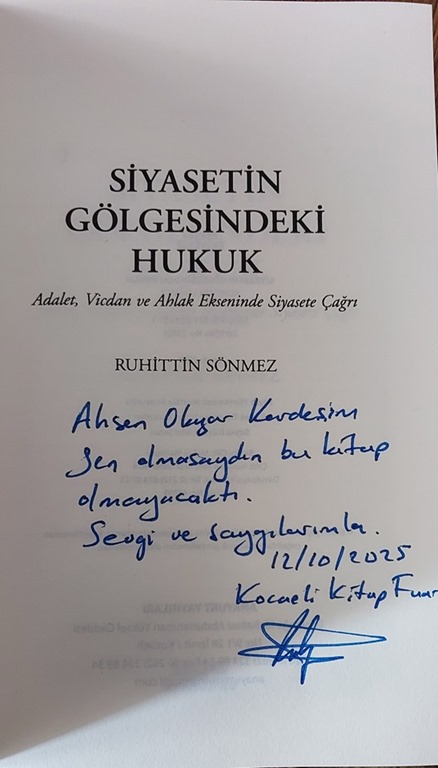 SİYASETİN
GÖLGESİNDEKİ
HUKUK
Adalet, Vicdan ve Ahlak Ekseninde Siyasete Çağrı
RUHİTTİN SÖNMEZ
Ahsen Okyar Kardeşim
Sen olmasaydın bu kitap
olmayacaktı.
Sevgi ve saygılarımla.
12/10/2025
Kocaeli Kitap Fuar